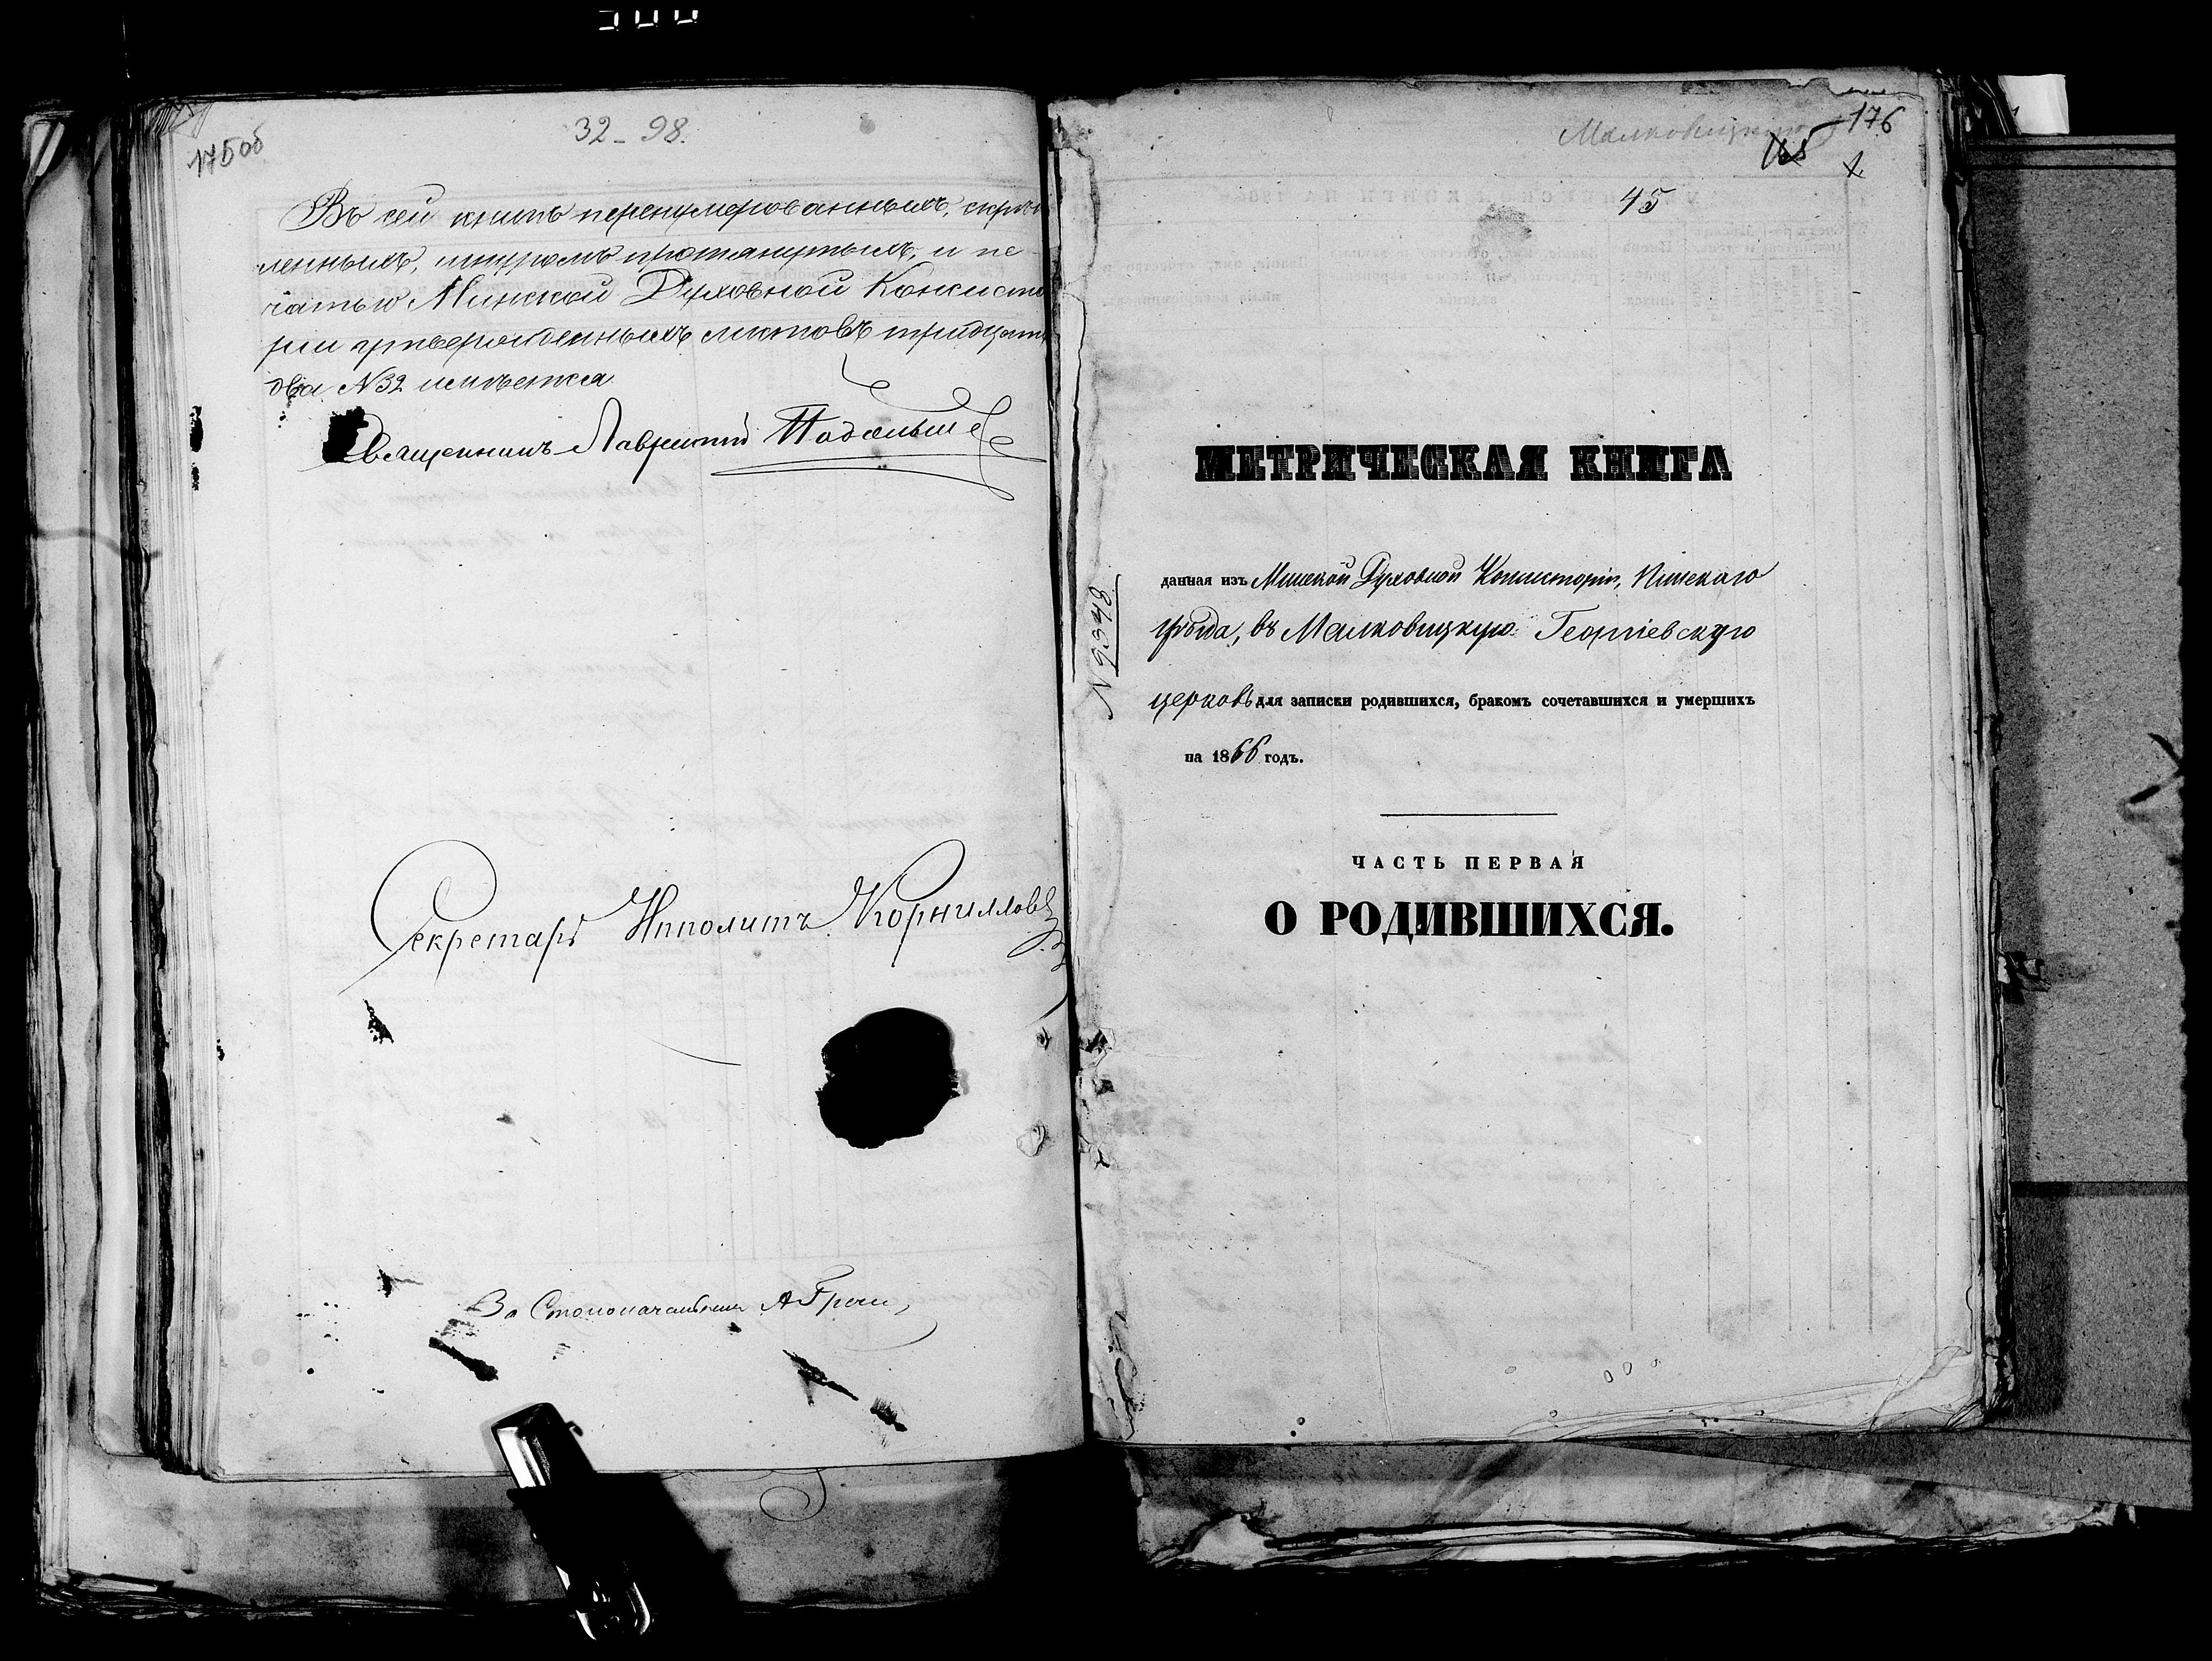 175об
32-98.
Въ сей книгѣ перенумерованныхъ, скрѣп
ленныхъ, шнуромъ протянутыхъ, и пе-
чатью Минской Духовной Консисто
ріи утвержденныхъ листовъ тридцать
два №32 имѣется
Священникъ Лаврентій
Секретарь Ипполитъ Корниллов
За Столоначальника А Греч
Малковицкую 176
1
45
МЕТРИЧЕСКАЯ КНИГА
№ 9348
данная изъ Минской Духовной Консисторіи, Пинскаго
уѣзда, въ Малковицкую Георгіевскую
церковь для записки родившихся, бракомъ сочетавшихся и умершихъ
на 1866 годъ.
ЧАСТЬ ПЕРВАЯ
О РОДИВШИХСЯ.